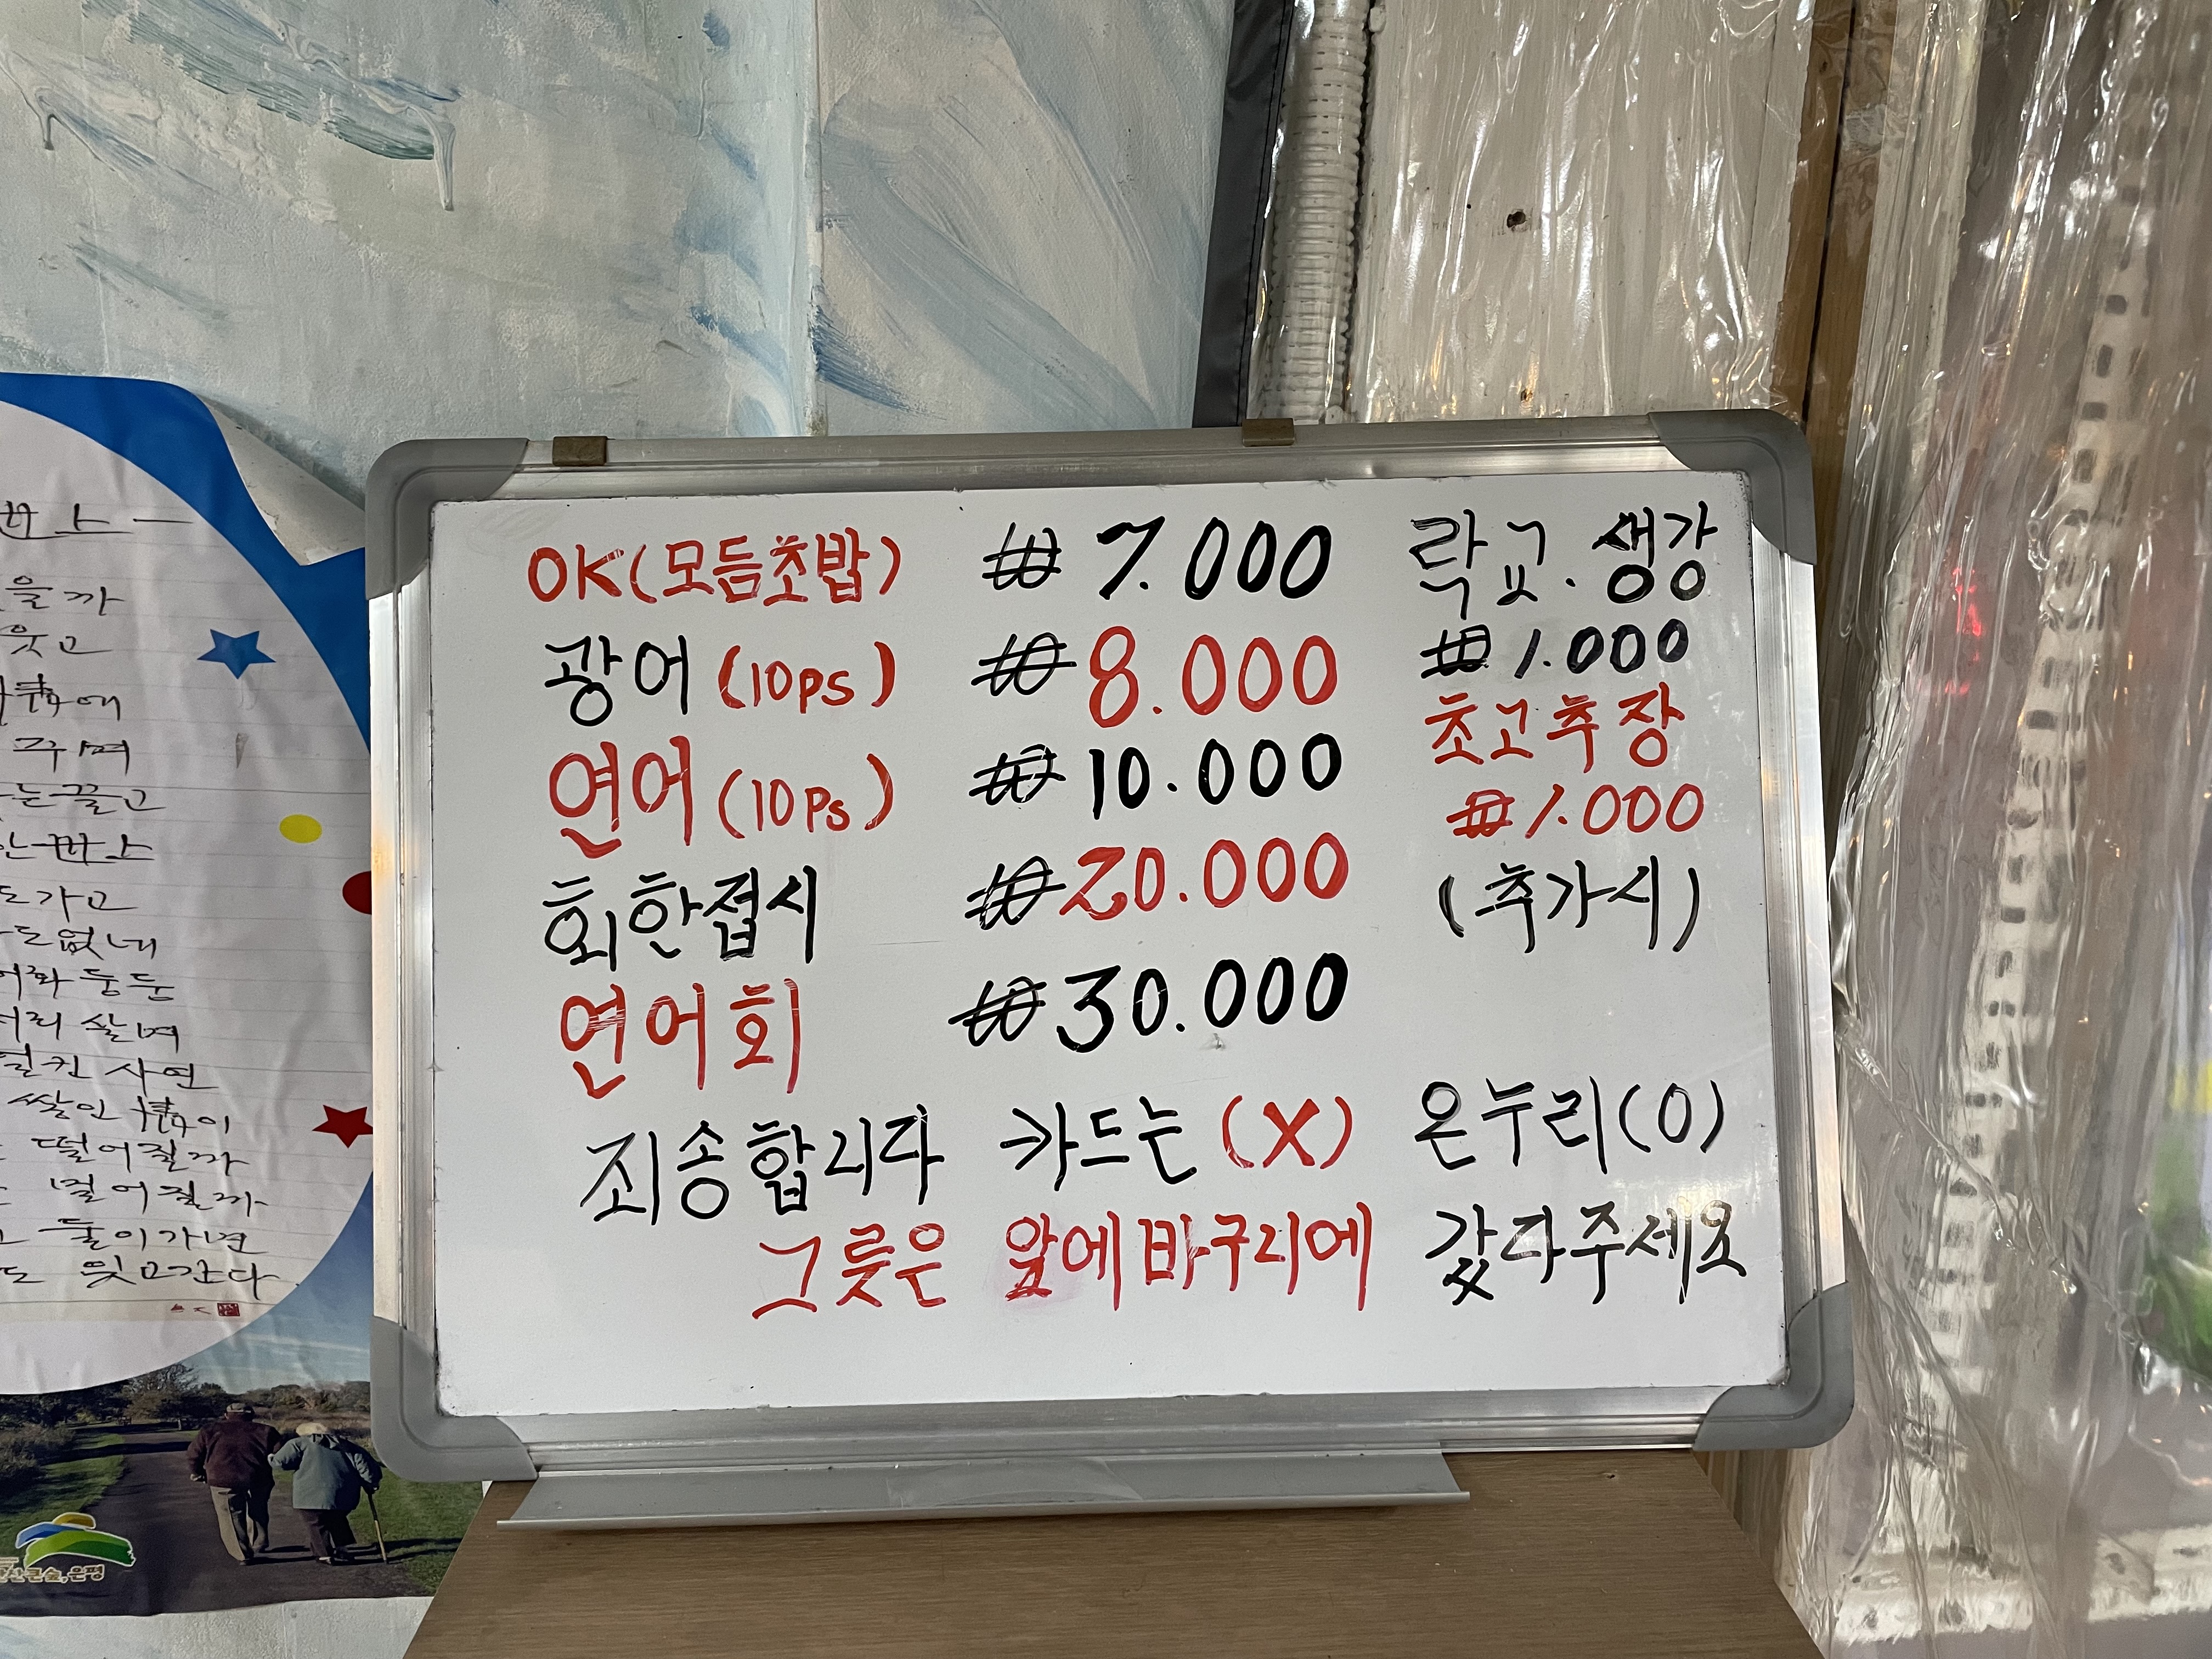 OK(모듬초밥) ₩ 7.000
광어 (10ps) ₩ 8.000
연어 (10ps) ₩ 10.000
회한접시 ₩ 20.000
연어회 ₩ 30.000
락교. 생강
₩ 1.000
초고추장
₩ 1.000
(추가시)
죄송합니다 카드는 (X) 온누리(O)
그릇은 앞에바구리에 갔다주세요
을까
웃고
꾸며
는끌고
도가고
도없네
어화둥둥
살며
사연
쌓인
떨어질까
멀어질까
둘이가면
웃고간다
큰숲,은평